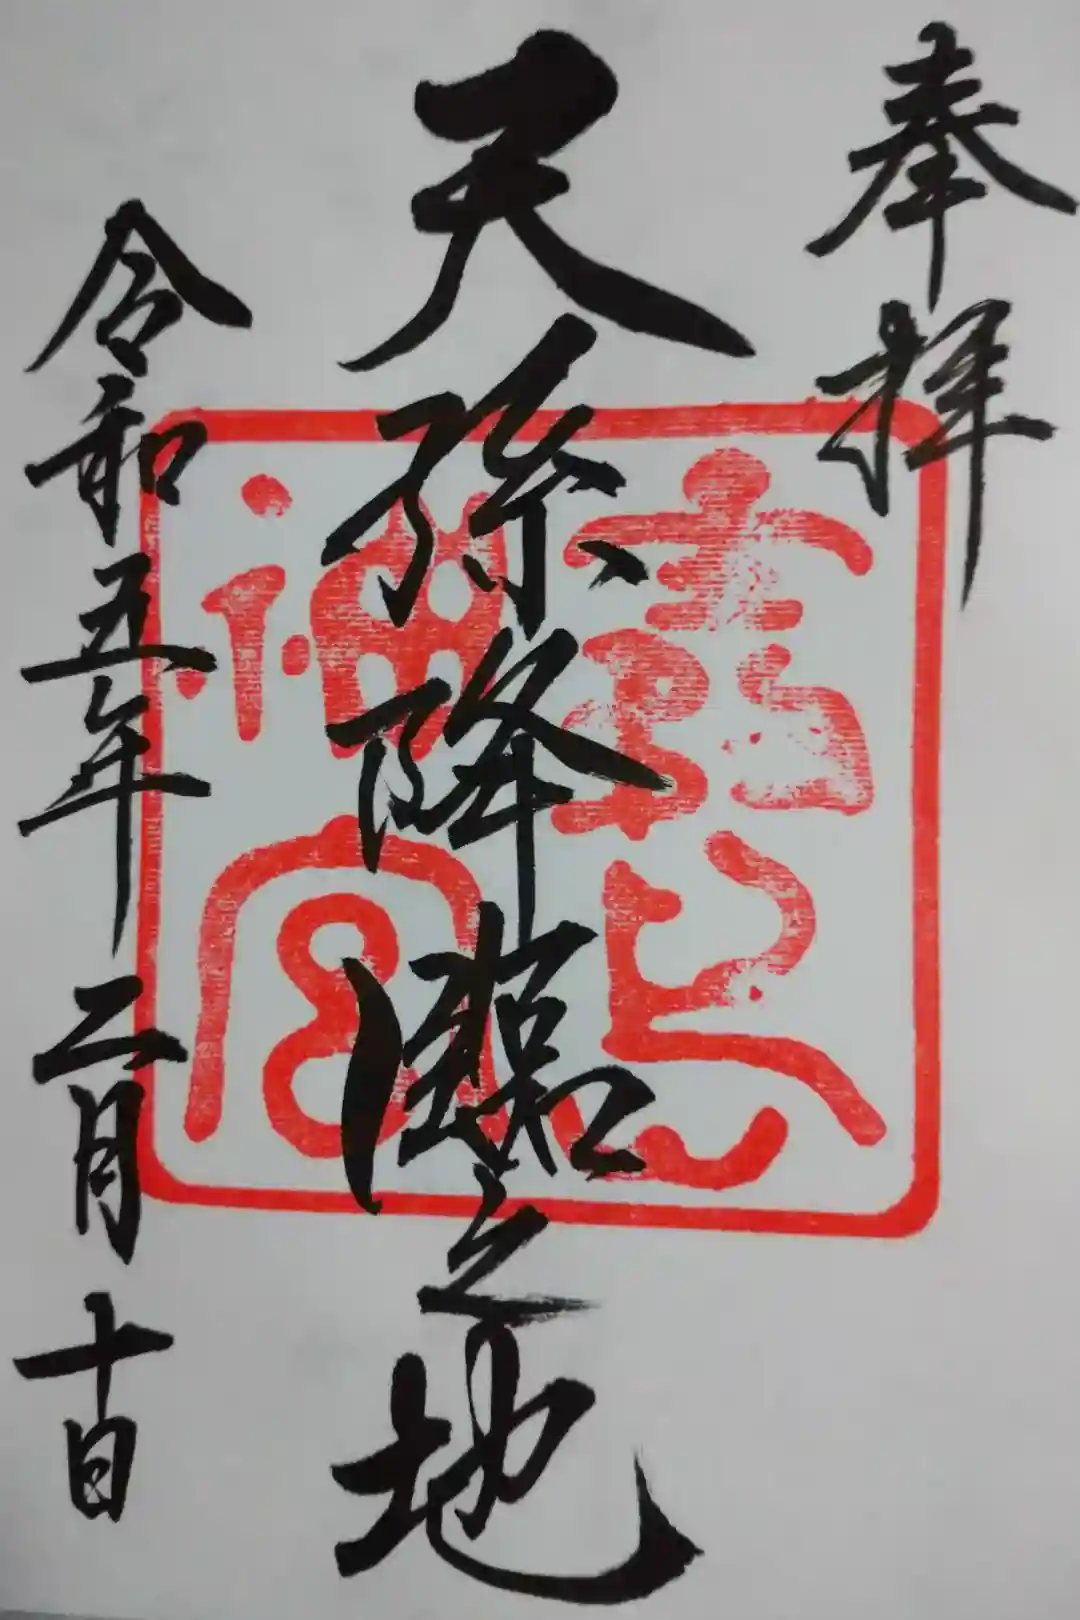 奉拝
天孫降臨之地
霧島
神宮
令和五年二月十日